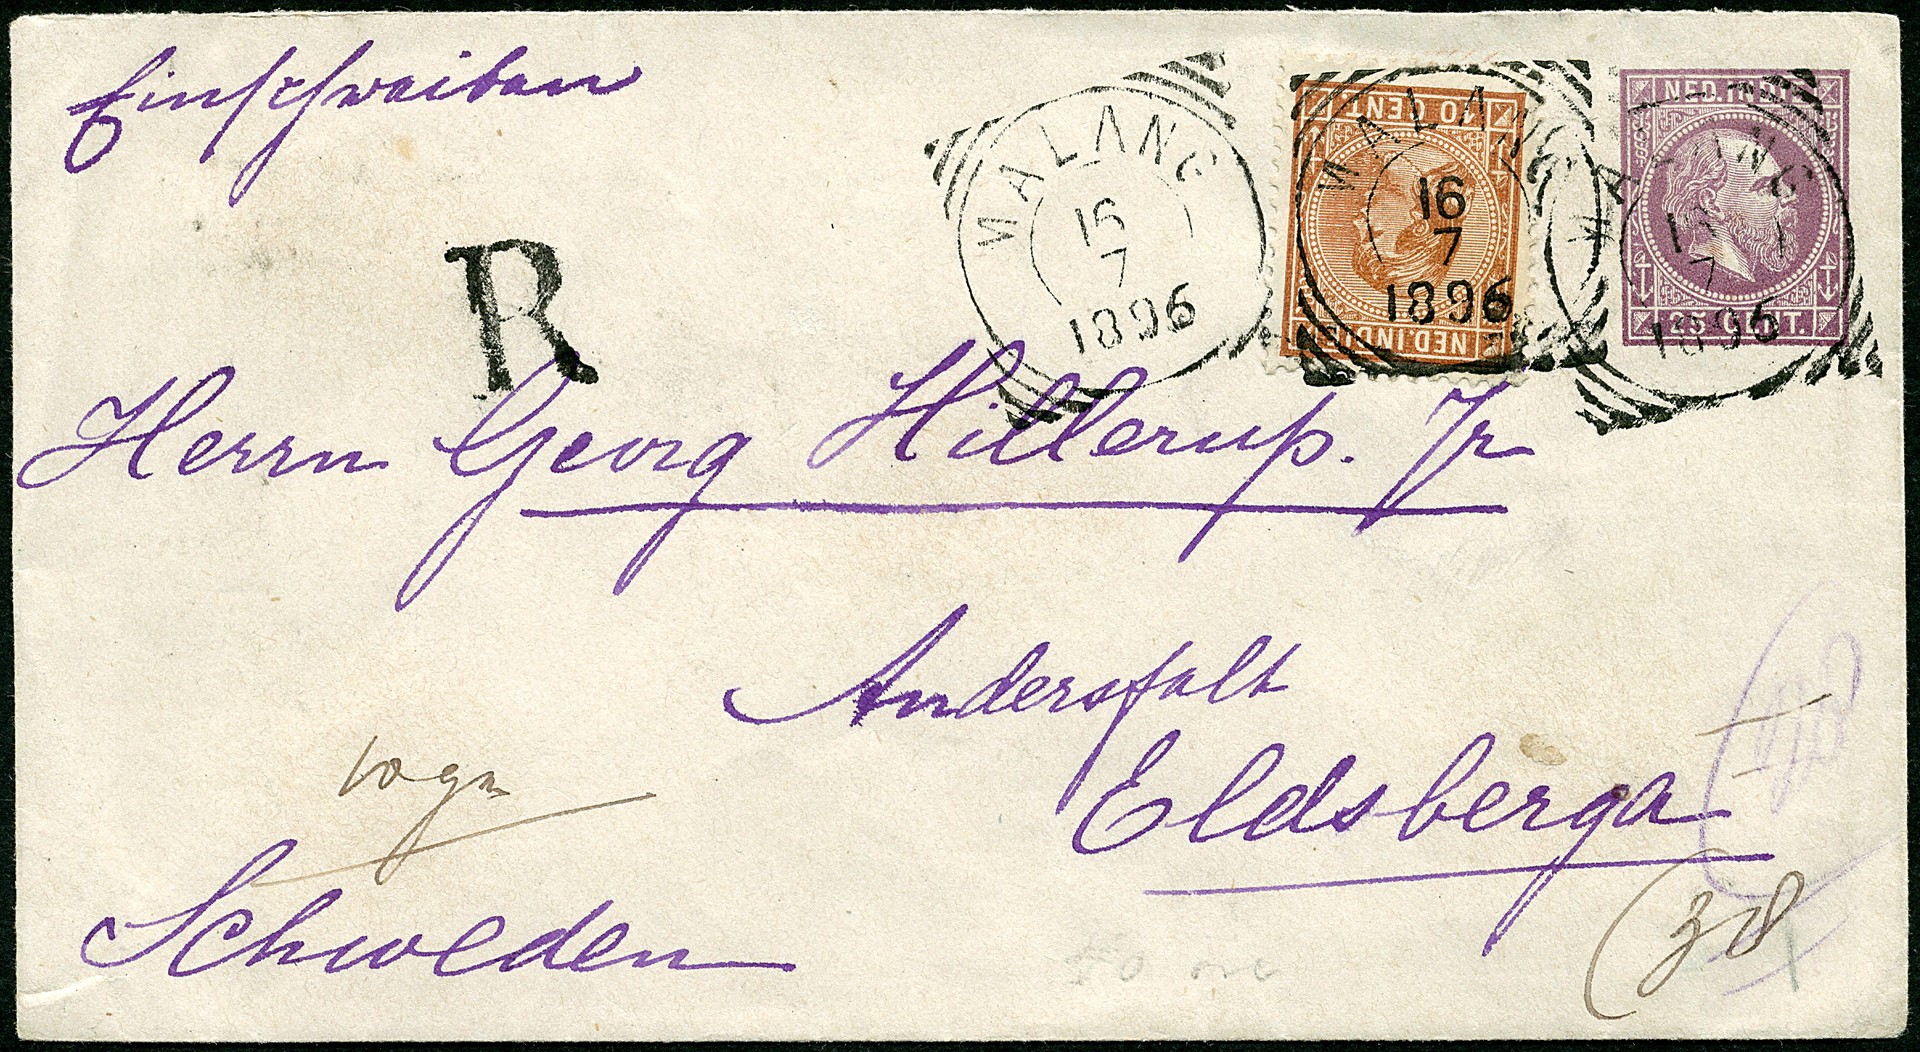 Einschreiben
MALANG
16
7
1896
10 CENT.
NED. INDIË
MALANG
16
7
1896
NED. INDIË
25 CENT.
MALANG
16
7
1896
R
Herrn Georg Hillerup. Jr
Andersfalt
Eldsberga
Schweden
(38